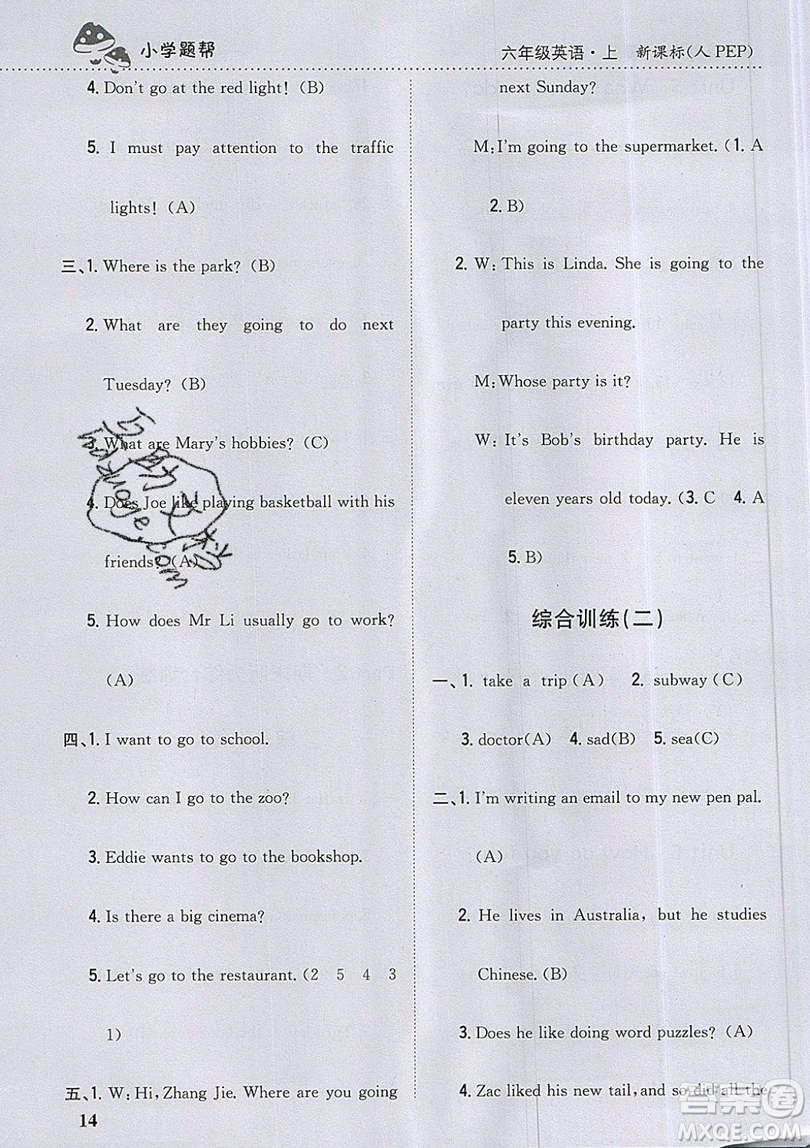 小学题帮
六年级英语·上 新课标(人PEP)
4. Don't go at the red light! (B)
5. I must pay attention to the traffic
lights! (A)
三、1. Where is the park? (B)
2. What are they going to do next
Tuesday? (B)
3. What are Mary's hobbies? (C)
4. Does Joe like playing basketball with his
friends? (A)
5. How does Mr Li usually go to work?
(A)
四、1. I want to go to school.
2. How can I go to the zoo?
3. Eddie wants to go to the bookshop.
4. Is there a big cinema?
5. Let's go to the restaurant. (2 5 4 3
1)
五、1. W: Hi, Zhang Jie. Where are you going
14
next Sunday?
M: I'm going to the supermarket. (1. A
2. B)
2. W: This is Linda. She is going to the
party this evening.
M: Whose party is it?
W: It's Bob's birthday party. He is
eleven years old today. (3. C 4. A
5. B)
综合训练(二)
一、1. take a trip(A) 2. subway(C)
3. doctor(A) 4. sad(B) 5. sea(C)
二、1. I'm writing an email to my new pen pal.
(A)
2. He lives in Australia, but he studies
Chinese. (B)
3. Does he like doing word puzzles? (A)
4. Zac liked his new tail, and so did all the
答案圈
MXQE.COM